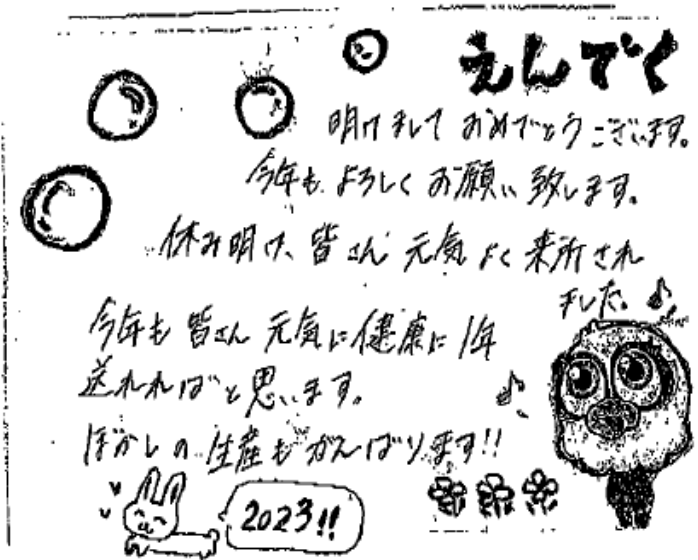 えんでく
明けましておめでとうございます。
今年もよろしくお願い致します。
休み明け、皆さん元気よく来所され
ました。
今年も皆さん元気に健康に1年
送れればと思います。
ぼかしの生産もがんばります!!
2023!!